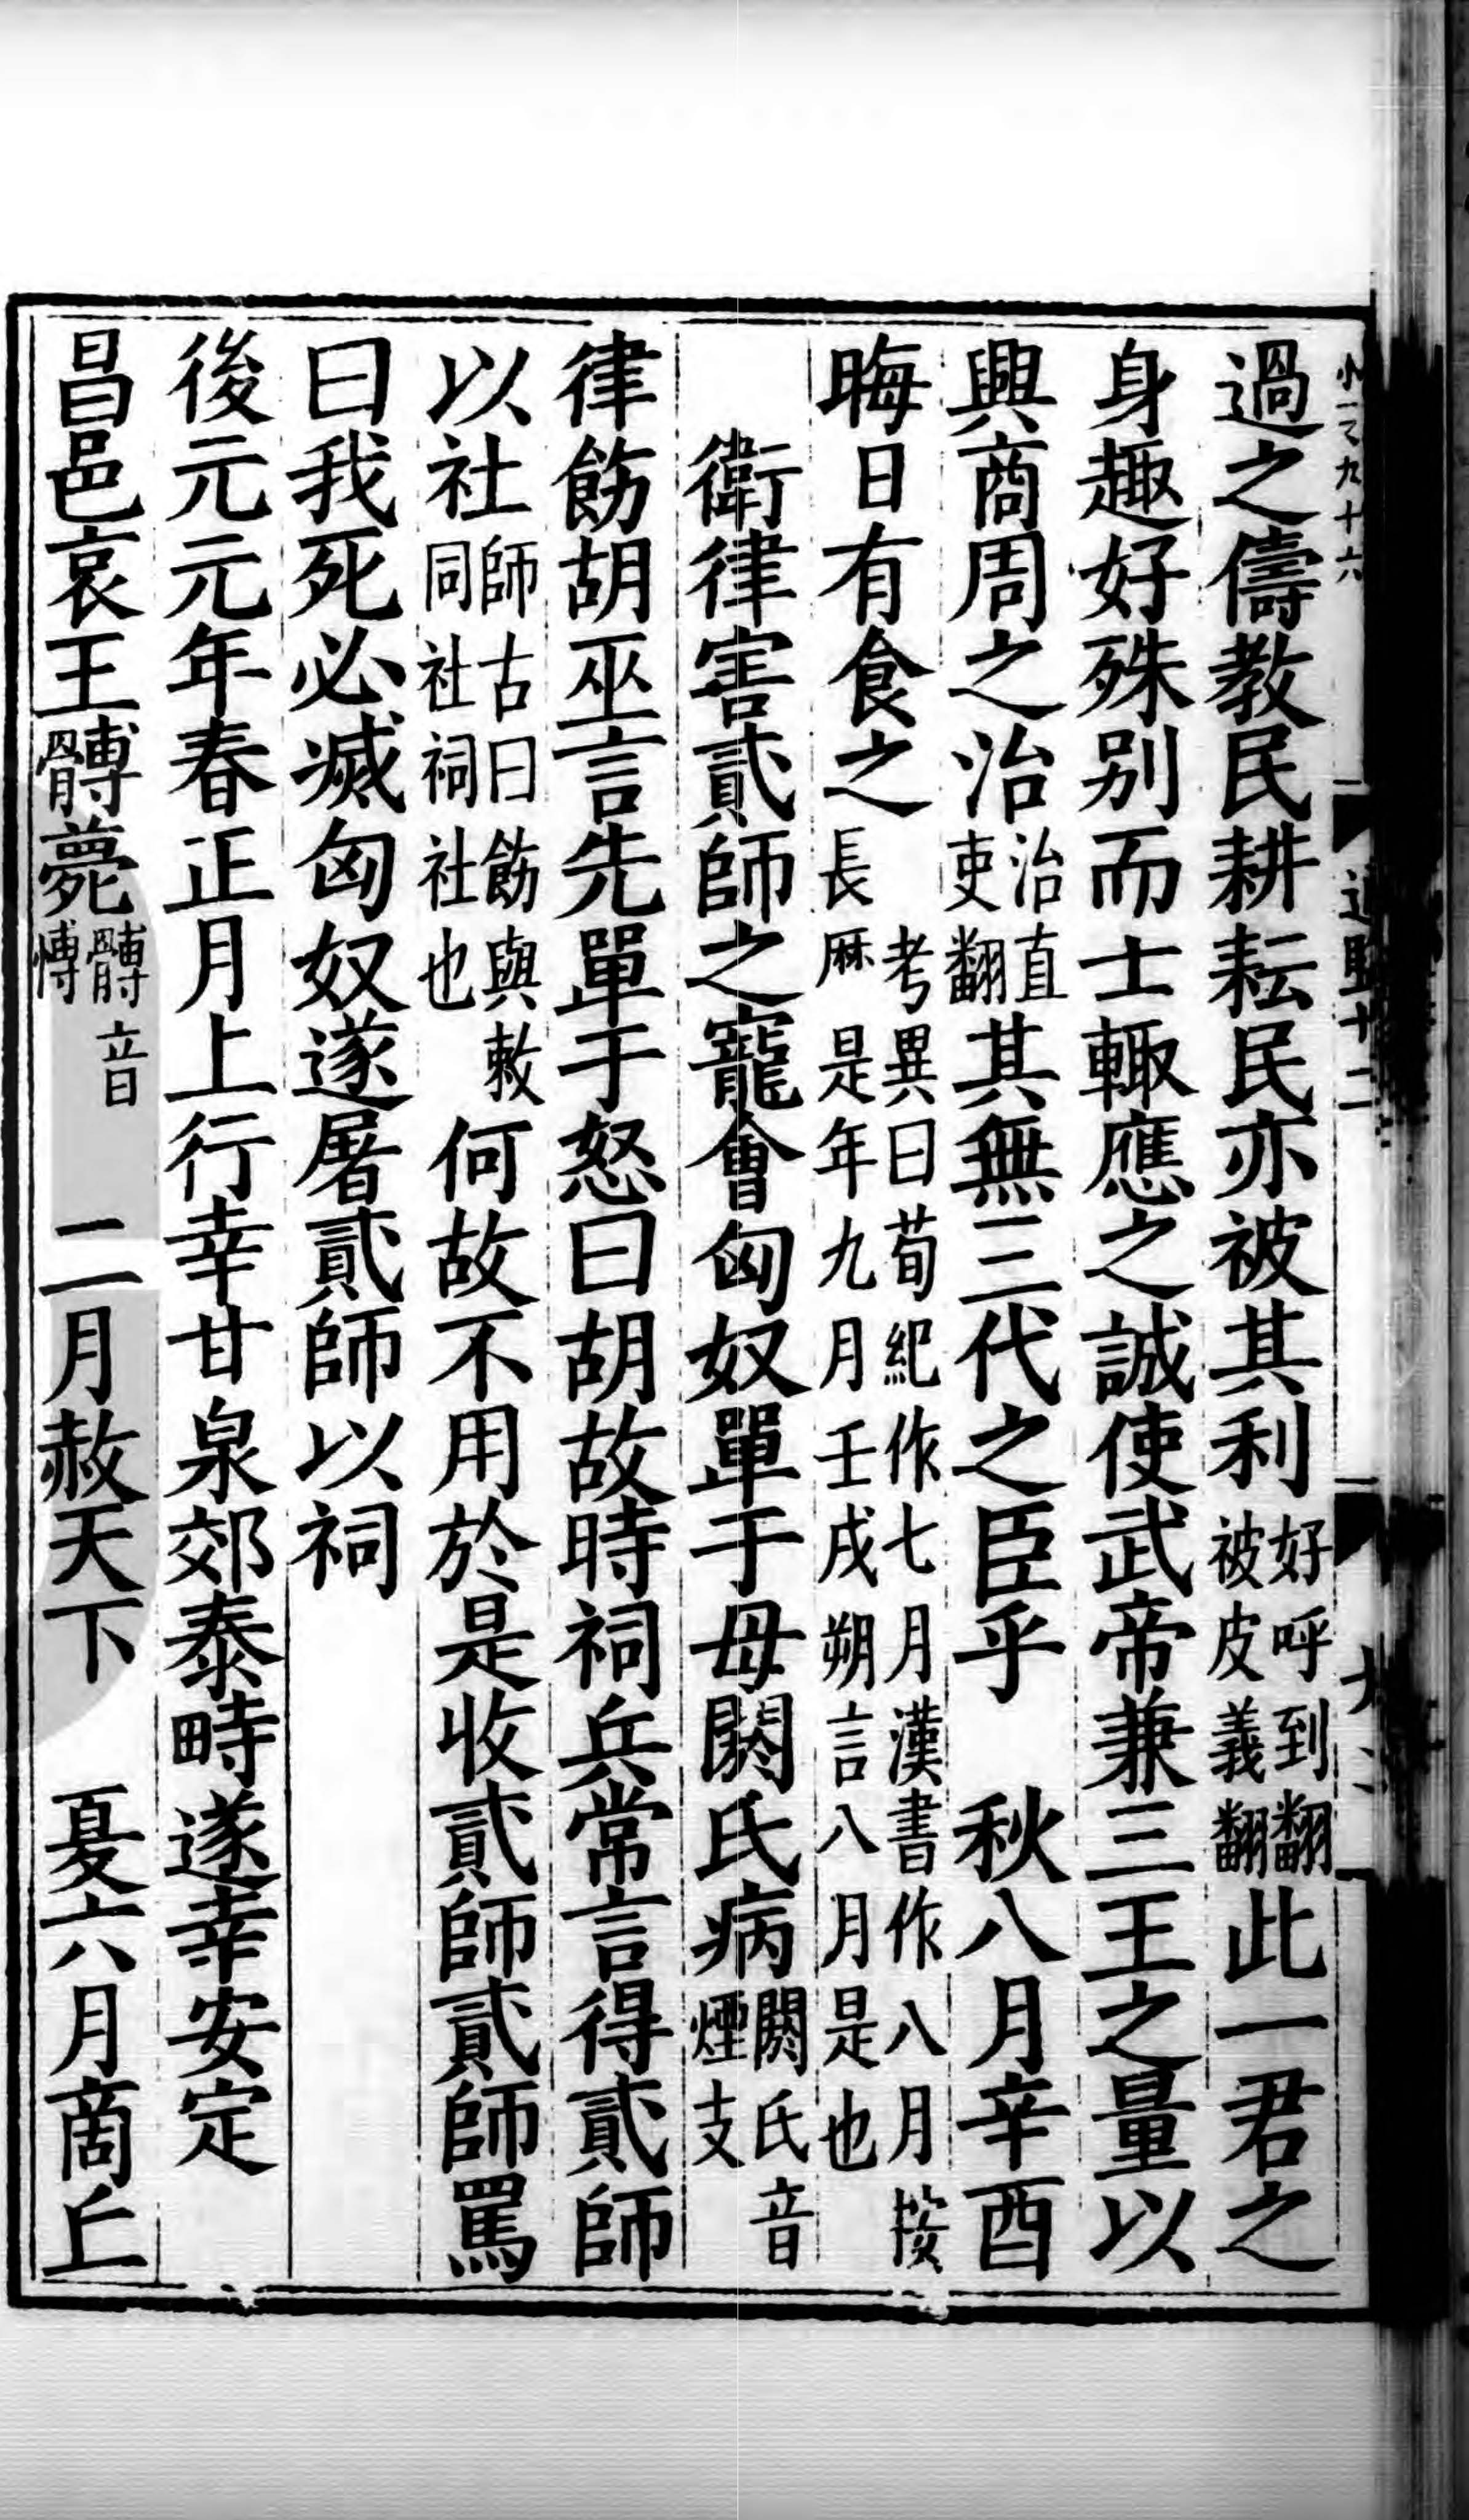 過之儔教民耕耘民亦被其利好呼到翻被皮義翻此一君之
身趣好殊別而士輒應之誠使武帝兼三王之量以
興商周之治治直吏翻其無三代之臣乎　秋八月辛酉
晦日有食之考異曰荀紀作七月漢書作八月按長厤是年九月壬戌朔言八月是也
衛律害貳師之寵會匈奴單于母閼氏病閼氏音煙支
律飭胡巫言先單于怒曰胡故時祠兵常言得貳師
以社師古曰飭與敕同社祠社也何故不用於是收貳師貳師罵
曰我死必滅匈奴遂屠貳師以祠
後元元年春正月上行幸甘泉郊泰畤遂幸安定
昌邑哀王髆薨髆音愽　二月赦天下　夏六月商丘